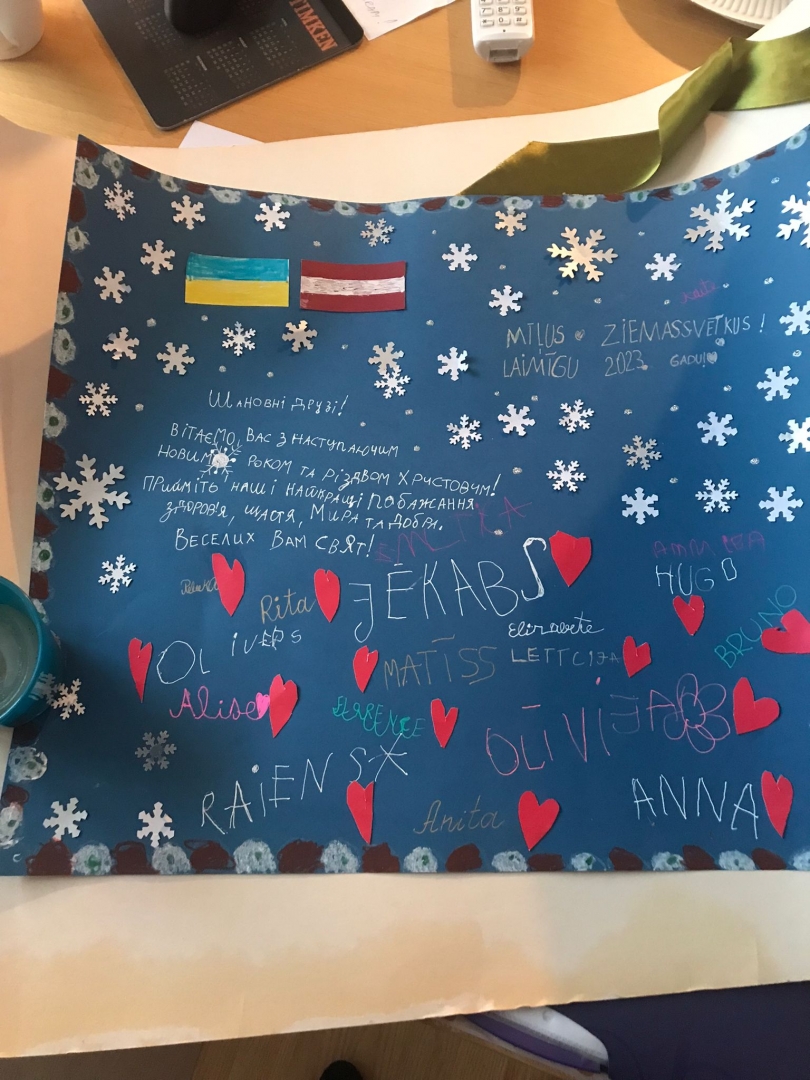 TIMKEN
MĪĻUS ZIEMASSVĒTKUS!
LAIMĪGU 2023. GADU!
Шановні друзі!
ВІТАЄМО ВАС З НАСТУПАЮЧИМ
НОВИМ РОКОМ ТА РІЗДВОМ ХРИСТОВИМ!
ПРИЙМІТЬ НАШІ НАЙКРАЩІ ПОБАЖАННЯ
ЗДОРОВ'Я, ЩАСТЯ, МИРА ТА ДОБРА.
ВЕСЕЛИХ ВАМ СВЯТ!
HUGO
JĒKABS
Rita
BRUNO
Elizabete
MATĪSS
Alise
OLĪVIJA
RAIENS
ANNA
Anita